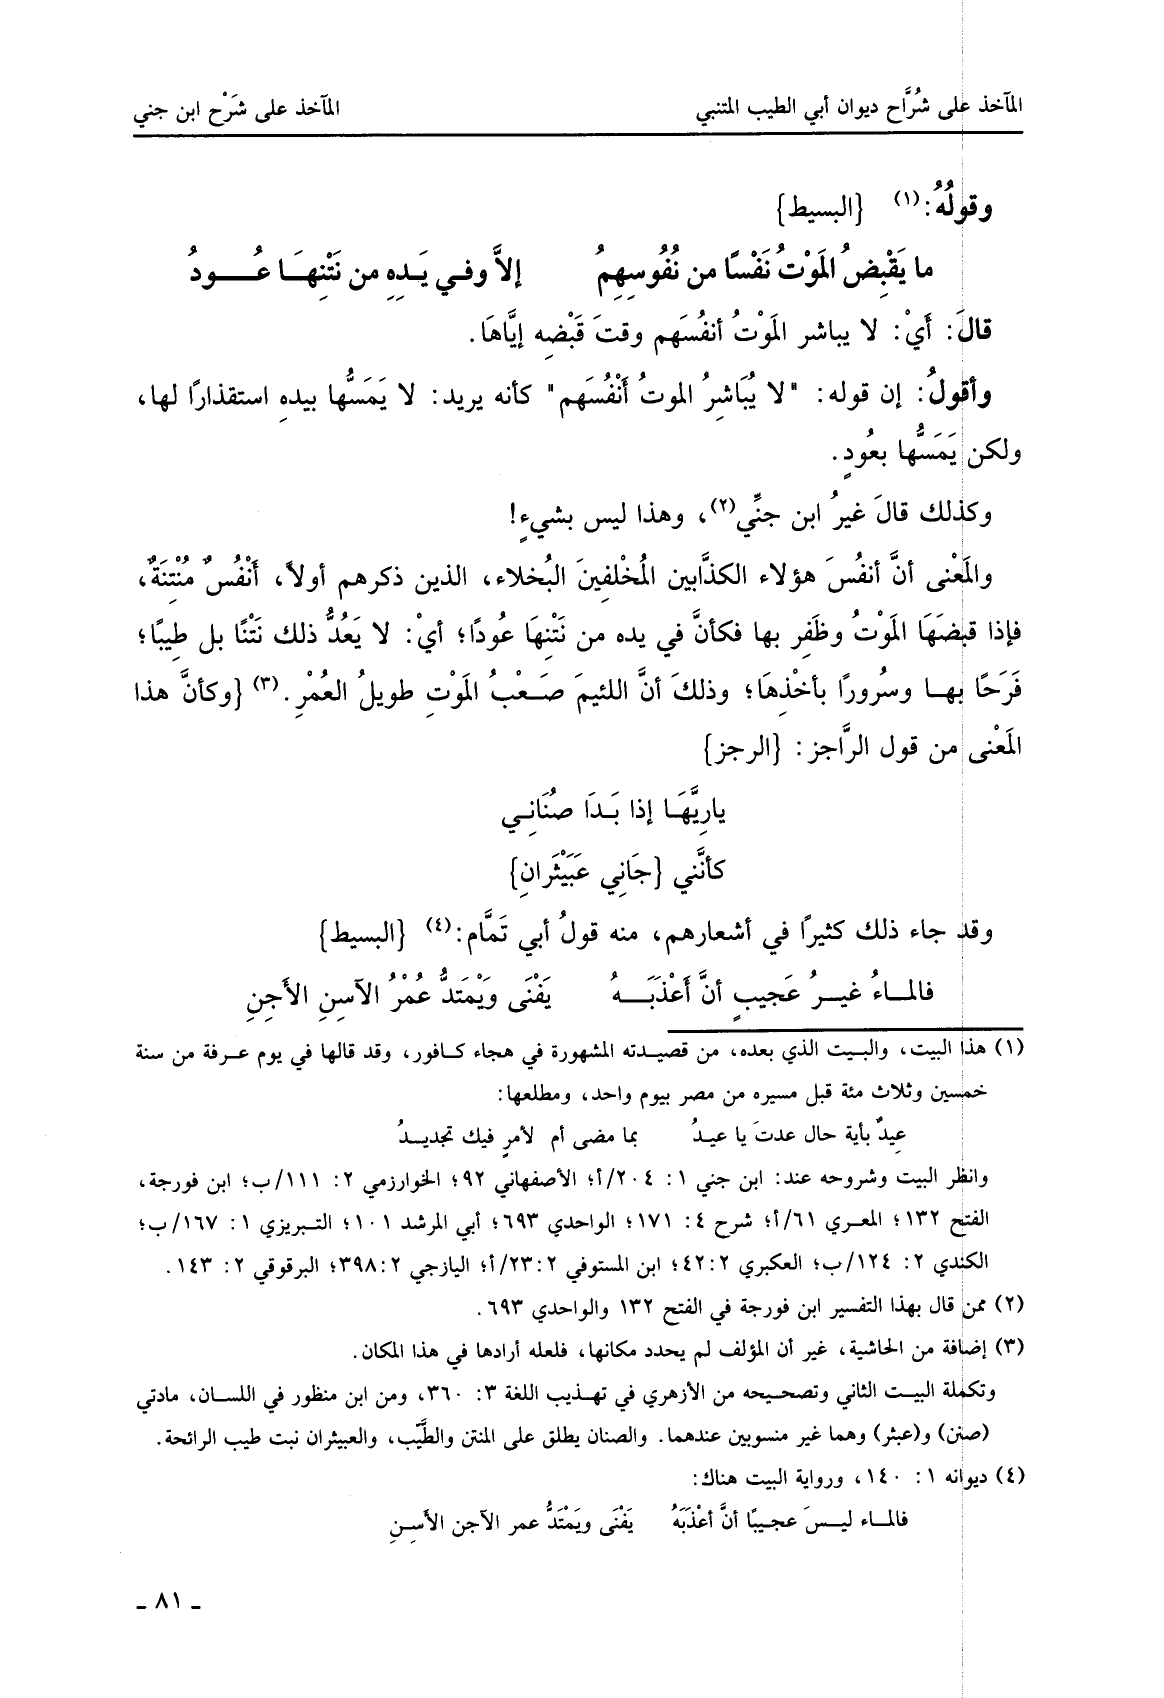 المآخذ على شُرَّاح ديوان أبي الطيب المتنبي المآخذ على شَرْح ابن جني
وقولُهُ:(١) {البسيط}
ما يَقْبِضُ المَوْتُ نَفْسًا من نُفُوسِهِمُ إلاَّ وفي يَدِهِ من نَتْنِهَا عُودُ
قالَ: أَيْ: لا يباشر المَوْتُ أنفُسَهم وقتَ قَبْضِه إيَّاهَا.
وأقولُ: إن قوله: "لا يُبَاشِرُ الموتُ أَنْفُسَهم" كأنه يريد: لا يَمَسُّها بيدهِ استقذارًا لها،
ولكن يَمَسُّها بعُودٍ.
وكذلك قالَ غيرُ ابن جنِّي(٢)، وهذا ليس بشيءٍ!
والمَعْنى أنَّ أنفُسَ هؤلاء الكذَّابين المُخْلفينَ البُخلاء، الذين ذكرهم أولاً، أَنْفُسٌ مُنْتِنَةٌ،
فإذا قبضَهَا المَوْتُ وظَفِر بها فكأنَّ في يده من نَتْنِهَا عُودًا؛ أيْ: لا يَعُدُّ ذلك نَتْنًا بل طِيبًا؛
فَرَحًا بها وسُرورًا بأخْذِهَا؛ وذلكَ أنَّ اللئيمَ صَعْبُ المَوْتِ طويلُ العُمْرِ.(٣) {وكأنَّ هذا
المَعْنى من قول الرَّاجز: {الرجز}
يارِيَّهَا إذا بَدَا صُنَانِي
كأنَّني {جَانِي عَبَيْثَرانِ}
وقد جاء ذلك كثيرًا في أشعارهم، منه قولُ أبي تَمَّام:(٤) {البسيط}
فالماءُ غيرُ عَجيبٍ أنَّ أَعْذَبَهُ يَفْنَى ويَمْتَدُّ عُمْرُ الآسِنِ الأَجِنِ
(١) هذا البيت، والبيت الذي بعده، من قصيدته المشهورة في هجاء كافور، وقد قالها في يوم عرفة من سنة
خمسين وثلاث مئة قبل مسيره من مصر بيوم واحد، ومطلعها:
عِيدٌ بأية حال عدتَ يا عيدُ بما مضى أم لأمرٍ فيك تجديدُ
وانظر البيت وشروحه عند: ابن جني ١: ٢٠٤/أ؛ الأصفهاني ٩٢؛ الخوارزمي ٢: ١١١/ب؛ ابن فورجة،
الفتح ١٣٢؛ المعري ٦١/أ؛ شرح ٤: ١٧١؛ الواحدي ٦٩٣؛ أبي المرشد ١٠١؛ التبريزي ١: ١٦٧/ب؛
الكندي ٢: ١٢٤/ب؛ العكبري ٤٢:٢؛ ابن المستوفي ٢٣:٢/أ؛ اليازجي ٣٩٨:٢؛ البرقوقي ٢: ١٤٣.
(٢) ممن قال بهذا التفسير ابن فورجة في الفتح ١٣٢ والواحدي ٦٩٣.
(٣) إضافة من الحاشية، غير أن المؤلف لم يحدد مكانها، فلعله أرادها في هذا المكان.
وتكملة البيت الثاني وتصحيحه من الأزهري في تهذيب اللغة ٣: ٣٦٠، ومن ابن منظور في اللسان، مادتي
(صنن) و(عبثر) وهما غير منسوبين عندهما. والصنان يطلق على المنتن والطَّيِّب، والعبيثران نبت طيب الرائحة.
(٤) ديوانه ١: ١٤٠، ورواية البيت هناك:
فالماء ليسَ عجيبًا أنَّ أَعْذَبَهُ يَفْنَى ويَمْتَدُّ عمر الآجن الأَسِنِ
ـ ٨١ ـ